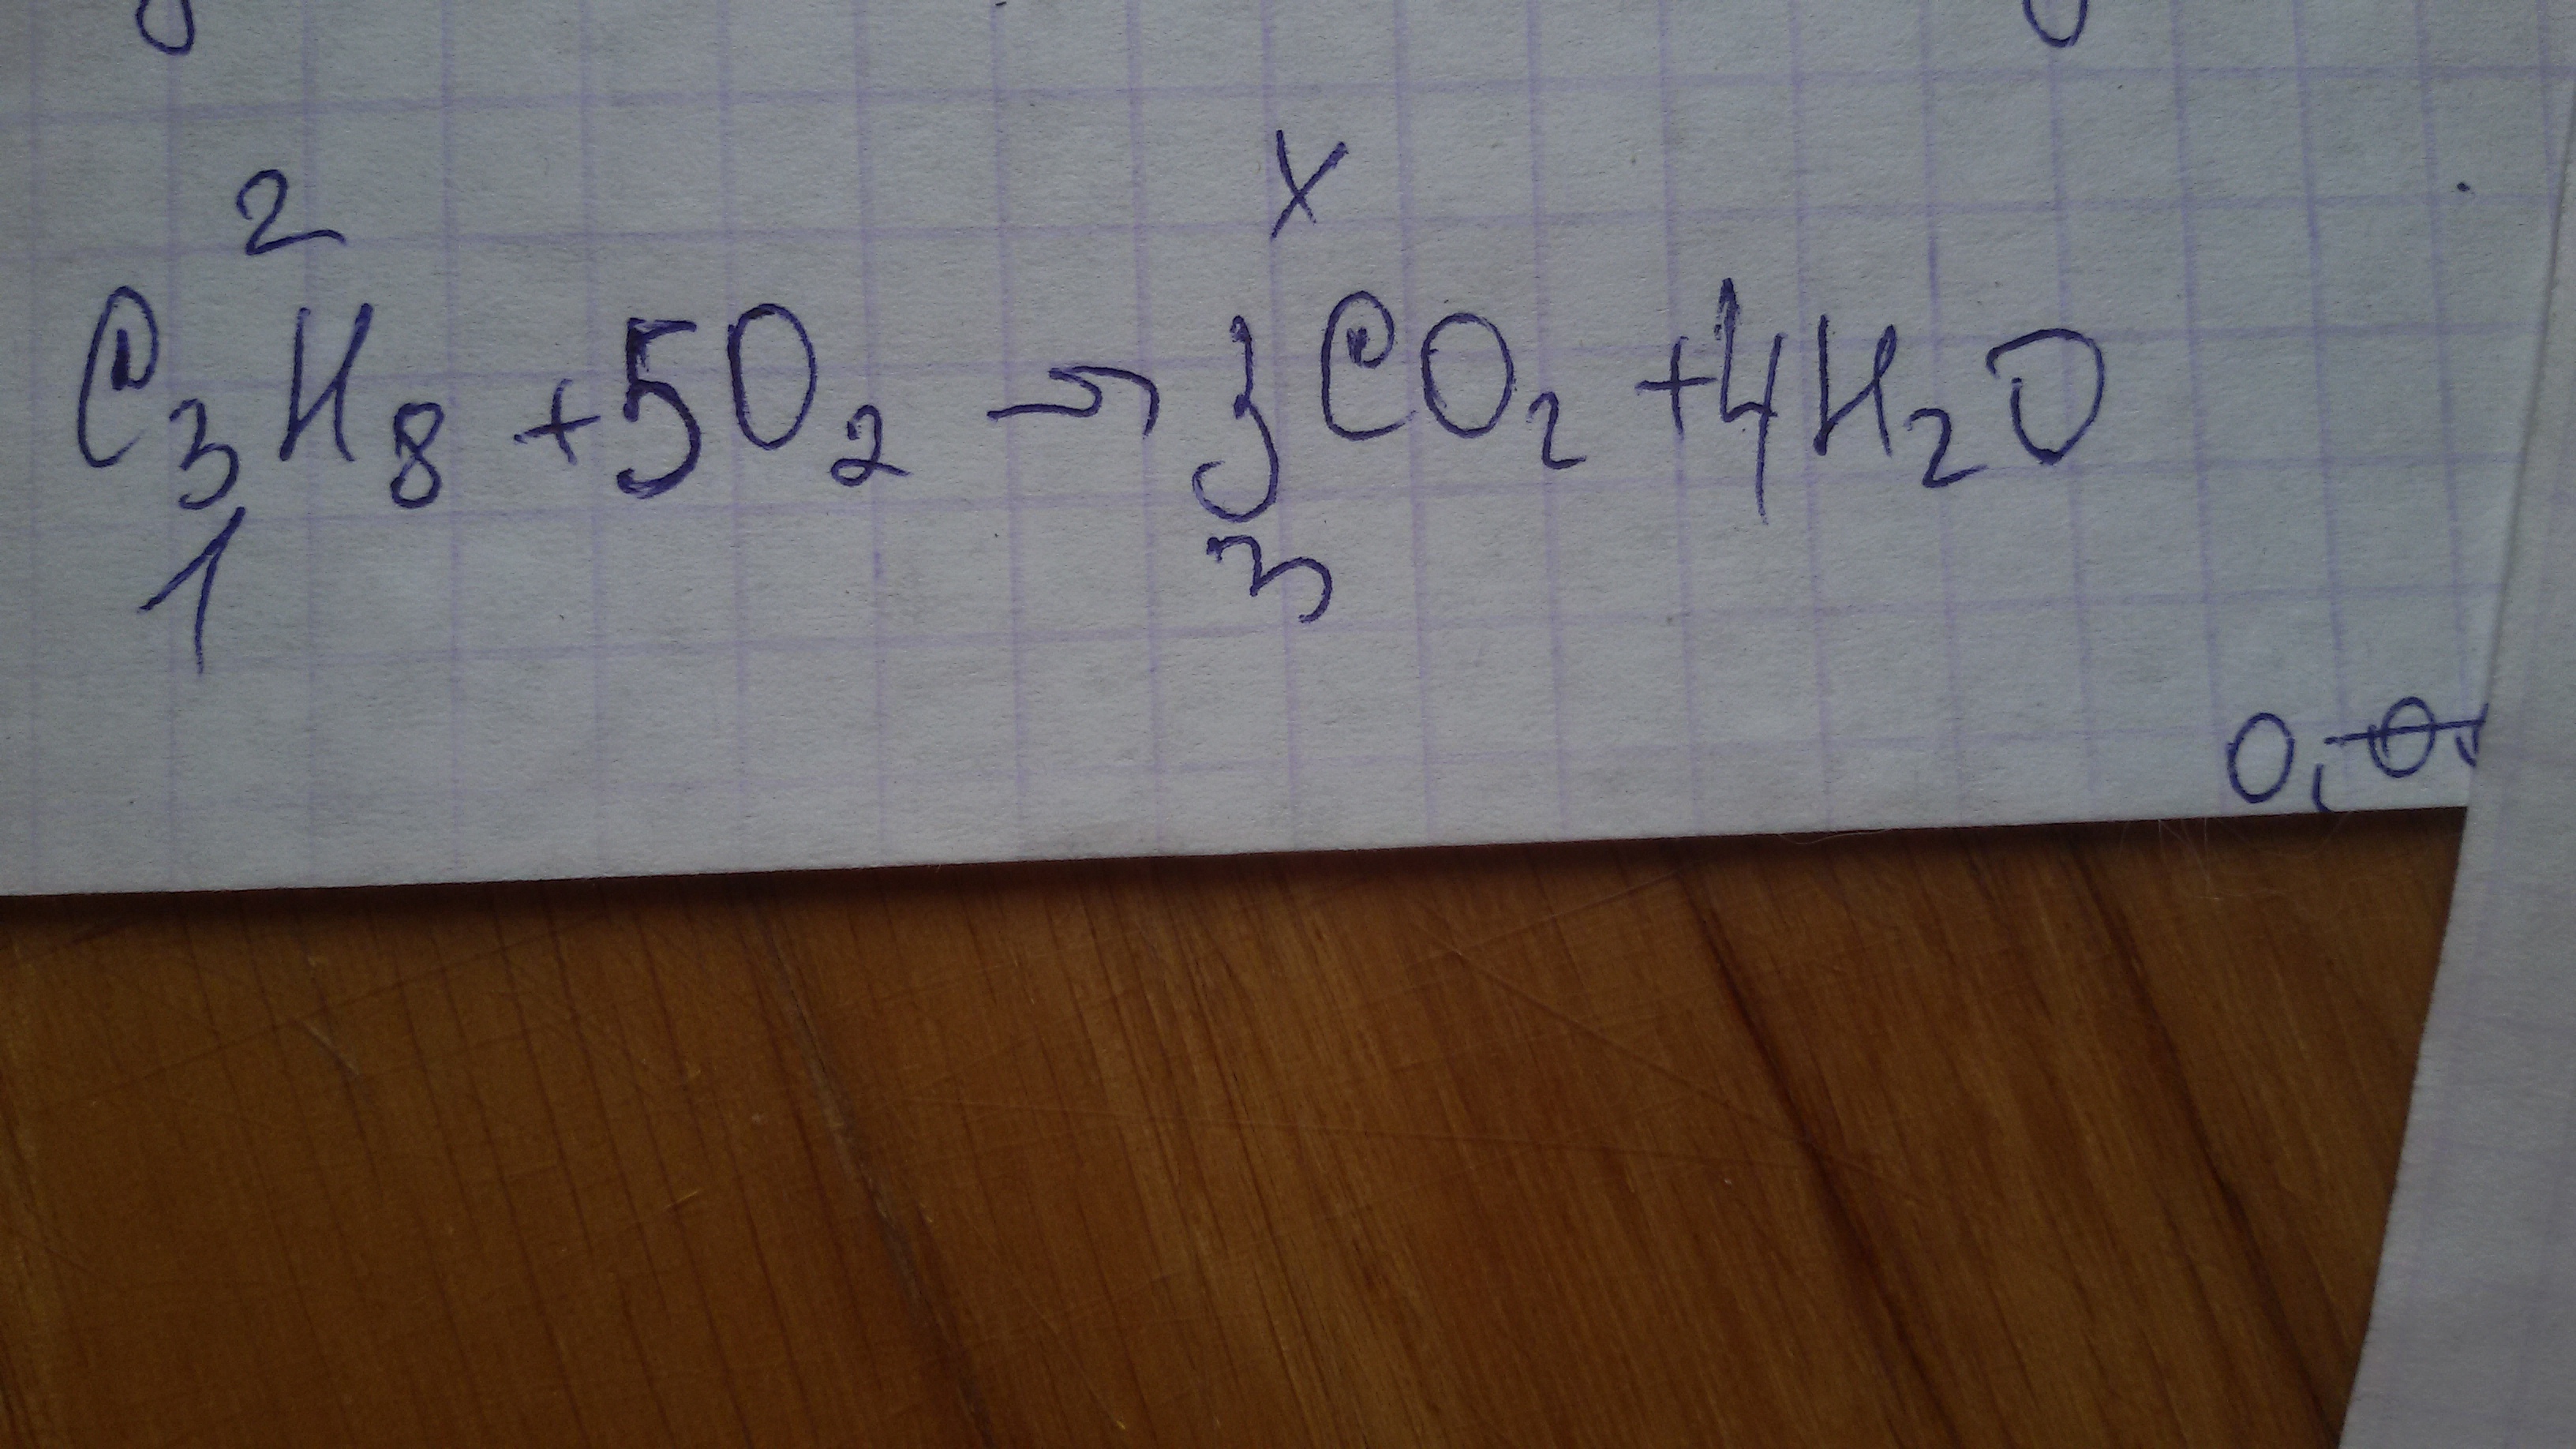 2 x
C₃H₈ + 5O₂ → 3CO₂ + 4H₂O
1 3
0,